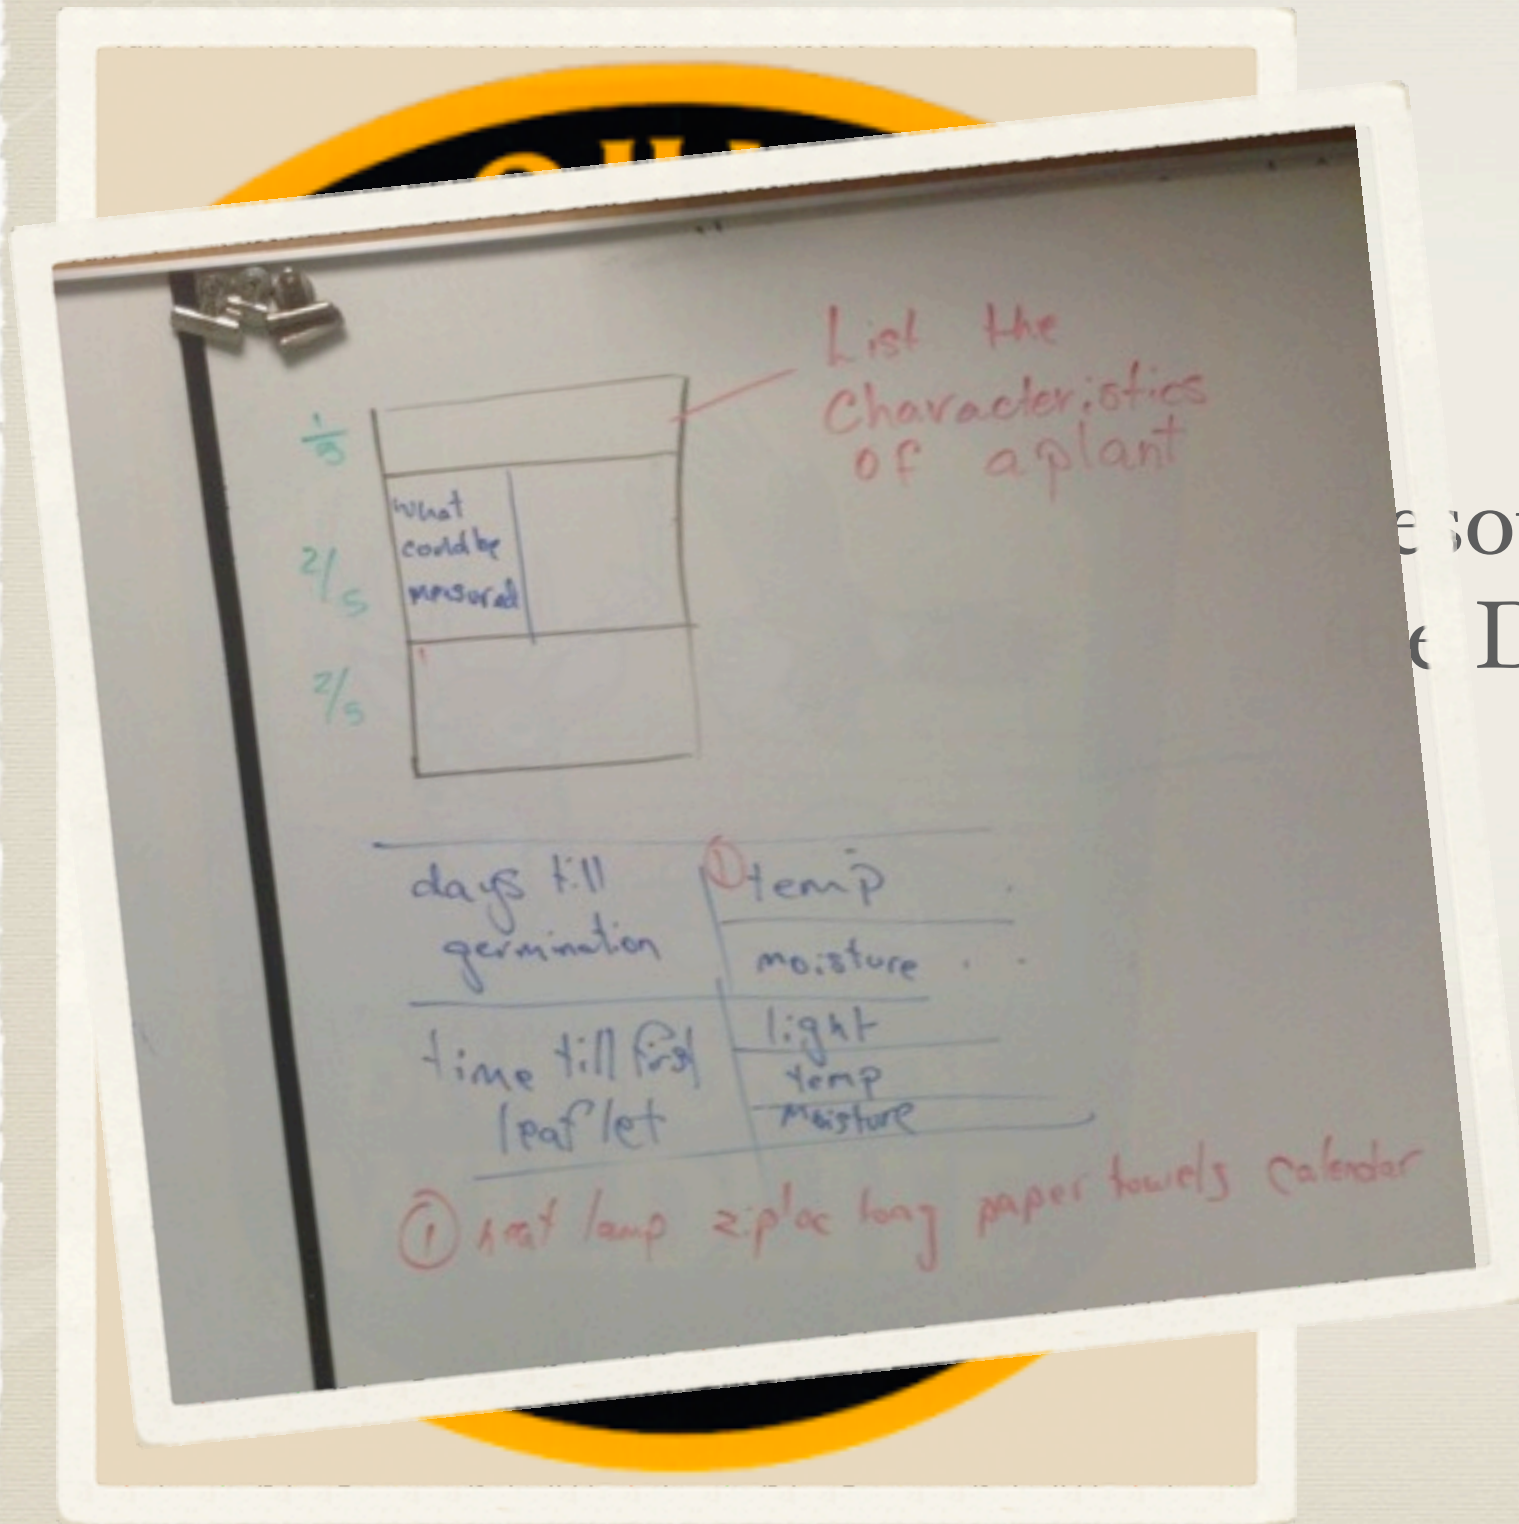 List the
Characteristics
of a plant
1/5
what
could be
measured
2/5
2/5
days till
germination
① temp
moisture
time till first
leaflet
light
temp
moisture
① heat lamp ziploc long paper towels calendar